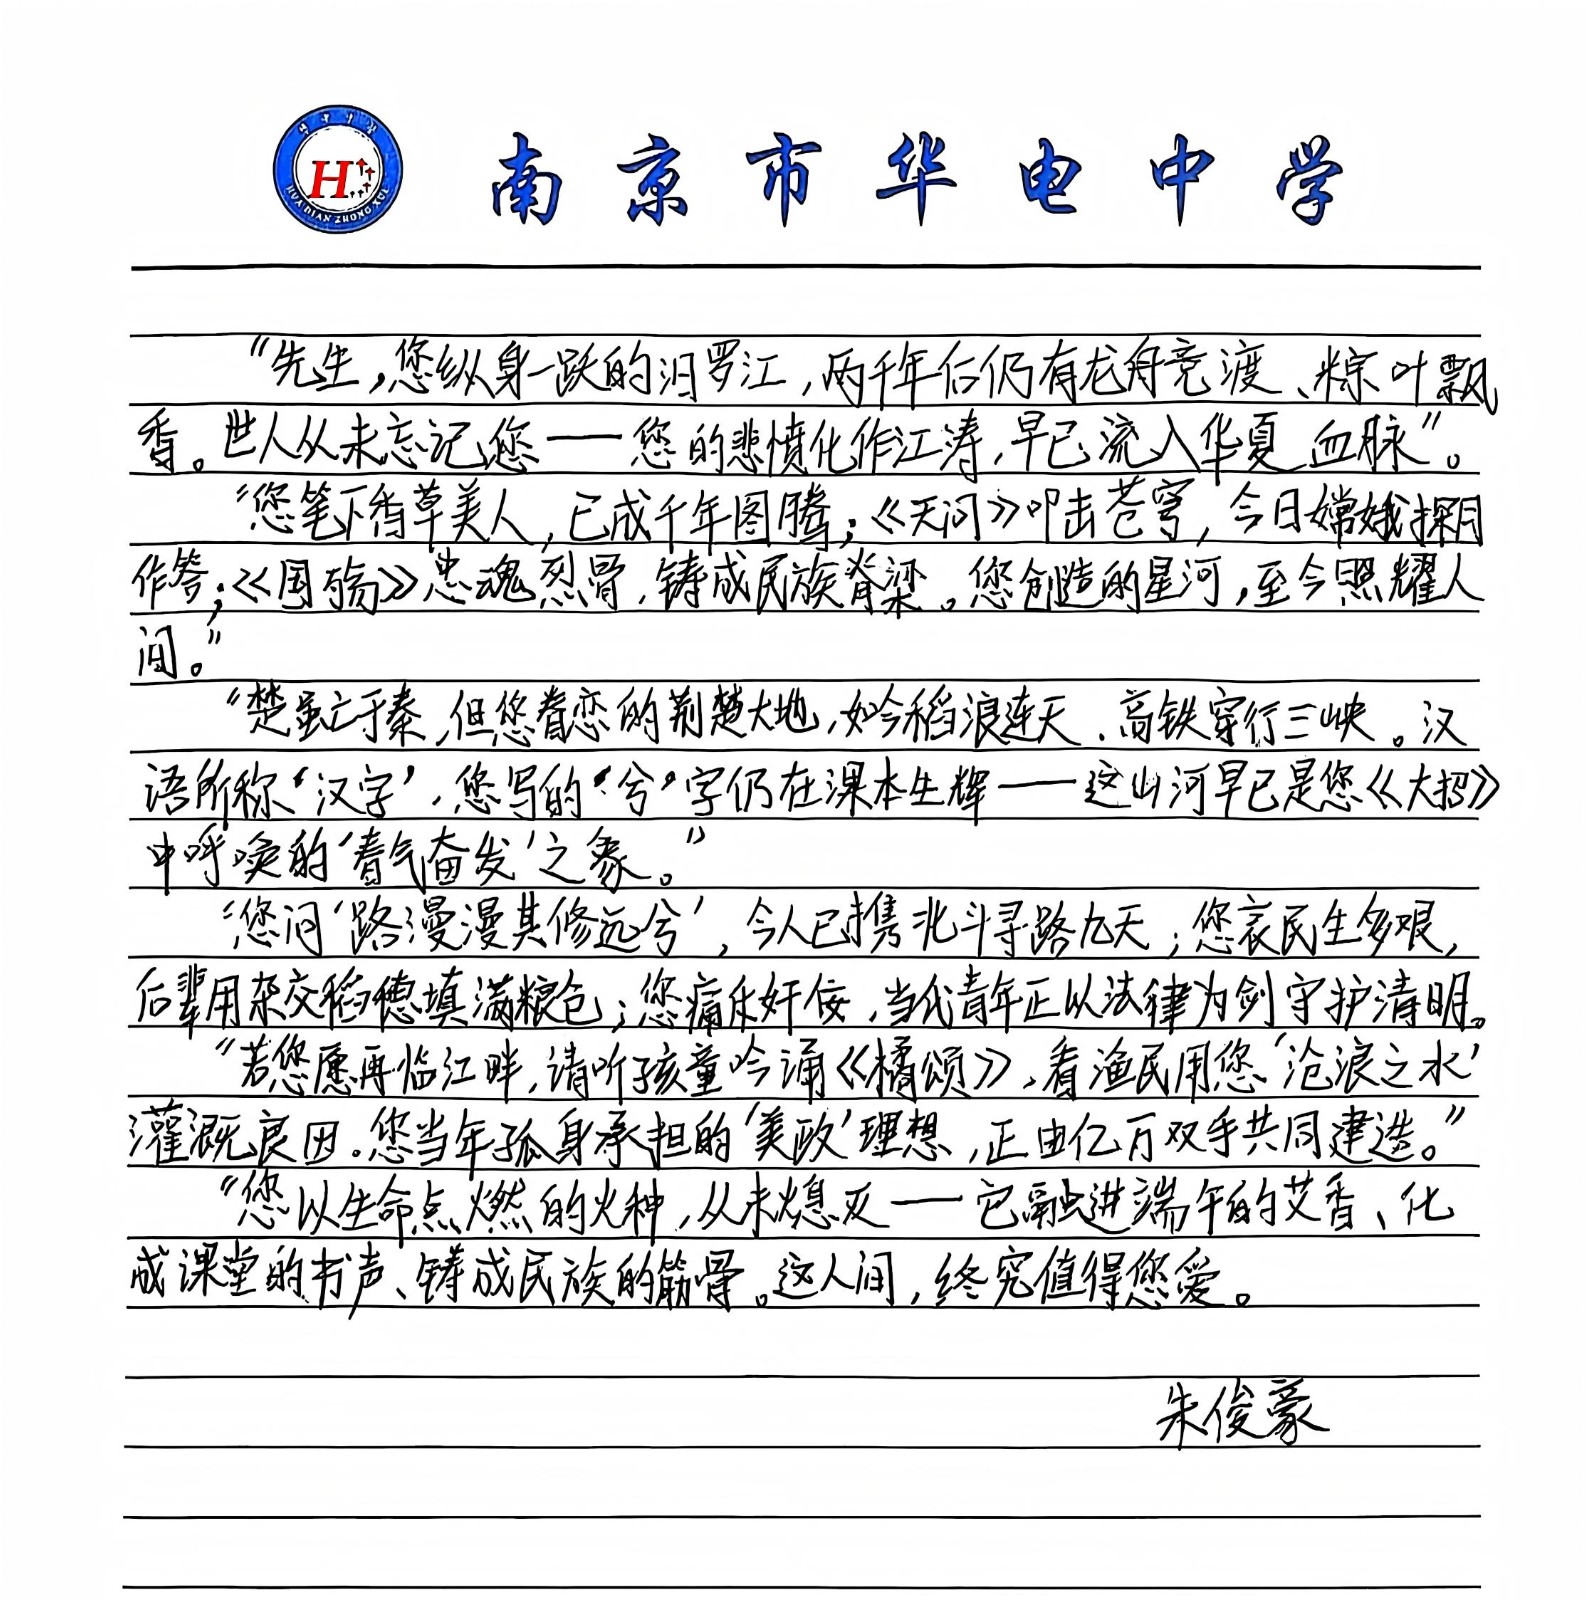 南京市华电中学
HUA DIAN ZHONG XUE
H
“先生，您纵身一跃的汨罗江，两千年后仍有龙舟竞渡、粽叶飘
香。世人从未忘记您——您的悲愤化作江涛，早已流入华夏血脉”。
“您笔下香草美人，已成千年图腾；《天问》叩击苍穹，今日嫦娥探月
作答；《国殇》忠魂烈骨，铸成民族脊梁。您创造的星河，至今照耀人
间。”
“楚虽亡于秦，但您眷恋的荆楚大地，如今稻浪连天、高铁穿行三峡。汉
语所称‘汉字’，您写的‘兮’字仍在课本生辉——这山河早已是您《大招》
中呼唤的‘春气奋发’之象。”
“您问‘路漫漫其修远兮’，今人已携北斗寻路九天；您哀民生多艰，
后辈用杂交稻穗填满粮仓；您痛斥奸佞，当代青年正以法律为剑守护清明。
“若您愿再临江畔，请听孩童吟诵《橘颂》，看渔民用您‘沧浪之水’
灌溉良田。您当年孤身承担的‘美政’理想，正由亿万双手共同建造。”
“您以生命点燃的火种，从未熄灭——它融进端午的艾香、化
成课堂的书声、铸成民族的筋骨。这人间，终究值得您爱。
朱俊豪